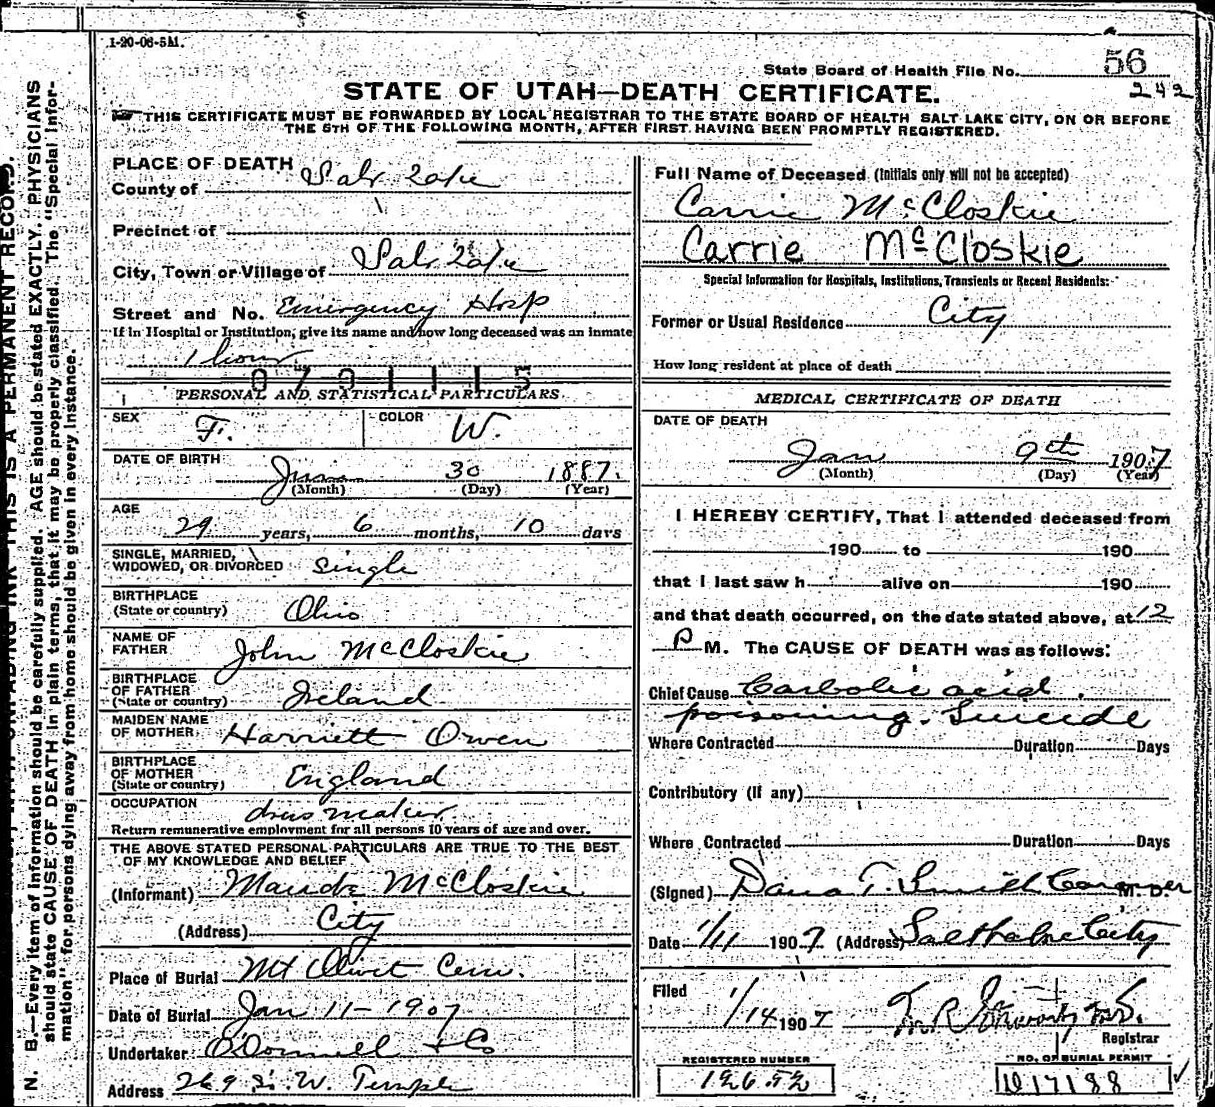 1-20-06-5M.
State Board of Health File No. 56
242
STATE OF UTAH—DEATH CERTIFICATE.
THIS CERTIFICATE MUST BE FORWARDED BY LOCAL REGISTRAR TO THE STATE BOARD OF HEALTH SALT LAKE CITY, ON OR BEFORE
THE 5TH OF THE FOLLOWING MONTH, AFTER FIRST HAVING BEEN PROMPTLY REGISTERED.
PLACE OF DEATH
County of Salt Lake
Precinct of
City, Town or Village of Salt Lake
Street and No. Emergency Hosp
If in Hospital or Institution, give its name and how long deceased was an inmate
1 hour
PERSONAL AND STATISTICAL PARTICULARS
SEX F. COLOR W.
DATE OF BIRTH June 30 1887.
(Month) (Day) (Year)
AGE
29 years, 6 months, 10 days
SINGLE, MARRIED,
WIDOWED, OR DIVORCED single
BIRTHPLACE
(State or country) Ohio
NAME OF
FATHER John McCloskie
BIRTHPLACE
OF FATHER
(State or country) Ireland
MAIDEN NAME
OF MOTHER Harriett Owen
BIRTHPLACE
OF MOTHER
(State or country) England
OCCUPATION dress maker
Return remunerative employment for all persons 10 years of age and over.
THE ABOVE STATED PERSONAL PARTICULARS ARE TRUE TO THE BEST
OF MY KNOWLEDGE AND BELIEF
(Informant) Maude McCloskie
(Address) City
Place of Burial Mt Olivet Cem.
Date of Burial Jan 11-1907
Undertaker O'Donnell & Co
Address 269 So. W. Temple
Full Name of Deceased (Initials only will not be accepted)
Carrie McCloskie
Carrie McCloskie
Special Information for Hospitals, Institutions, Transients or Recent Residents:
Former or Usual Residence City
How long resident at place of death
MEDICAL CERTIFICATE OF DEATH
DATE OF DEATH
Jan 9th 1907
(Month) (Day) (Year)
I HEREBY CERTIFY, That I attended deceased from
190 to 190
that I last saw h alive on 190
and that death occurred, on the date stated above, at 12
P M. The CAUSE OF DEATH was as follows:
Chief Cause Carbolic acid
poisoning. Suicide
Where Contracted Duration Days
Contributory (If any)
Where Contracted Duration Days
(Signed) Dana T. Smith Coroner M. D.
Date 1/11 1907. (Address) Salt Lake City
Filed 1/14 1907
Registrar
REGISTERED NUMBER
12652
NO. OF BURIAL PERMIT
17188
N. B.—Every item of information should be carefully supplied. AGE should be stated EXACTLY. PHYSICIANS
should state CAUSE OF DEATH in plain terms, that it may be properly classified. The "Special Infor-
mation" for persons dying away from home should be given in every instance.
THIS IS A PERMANENT RECORD.